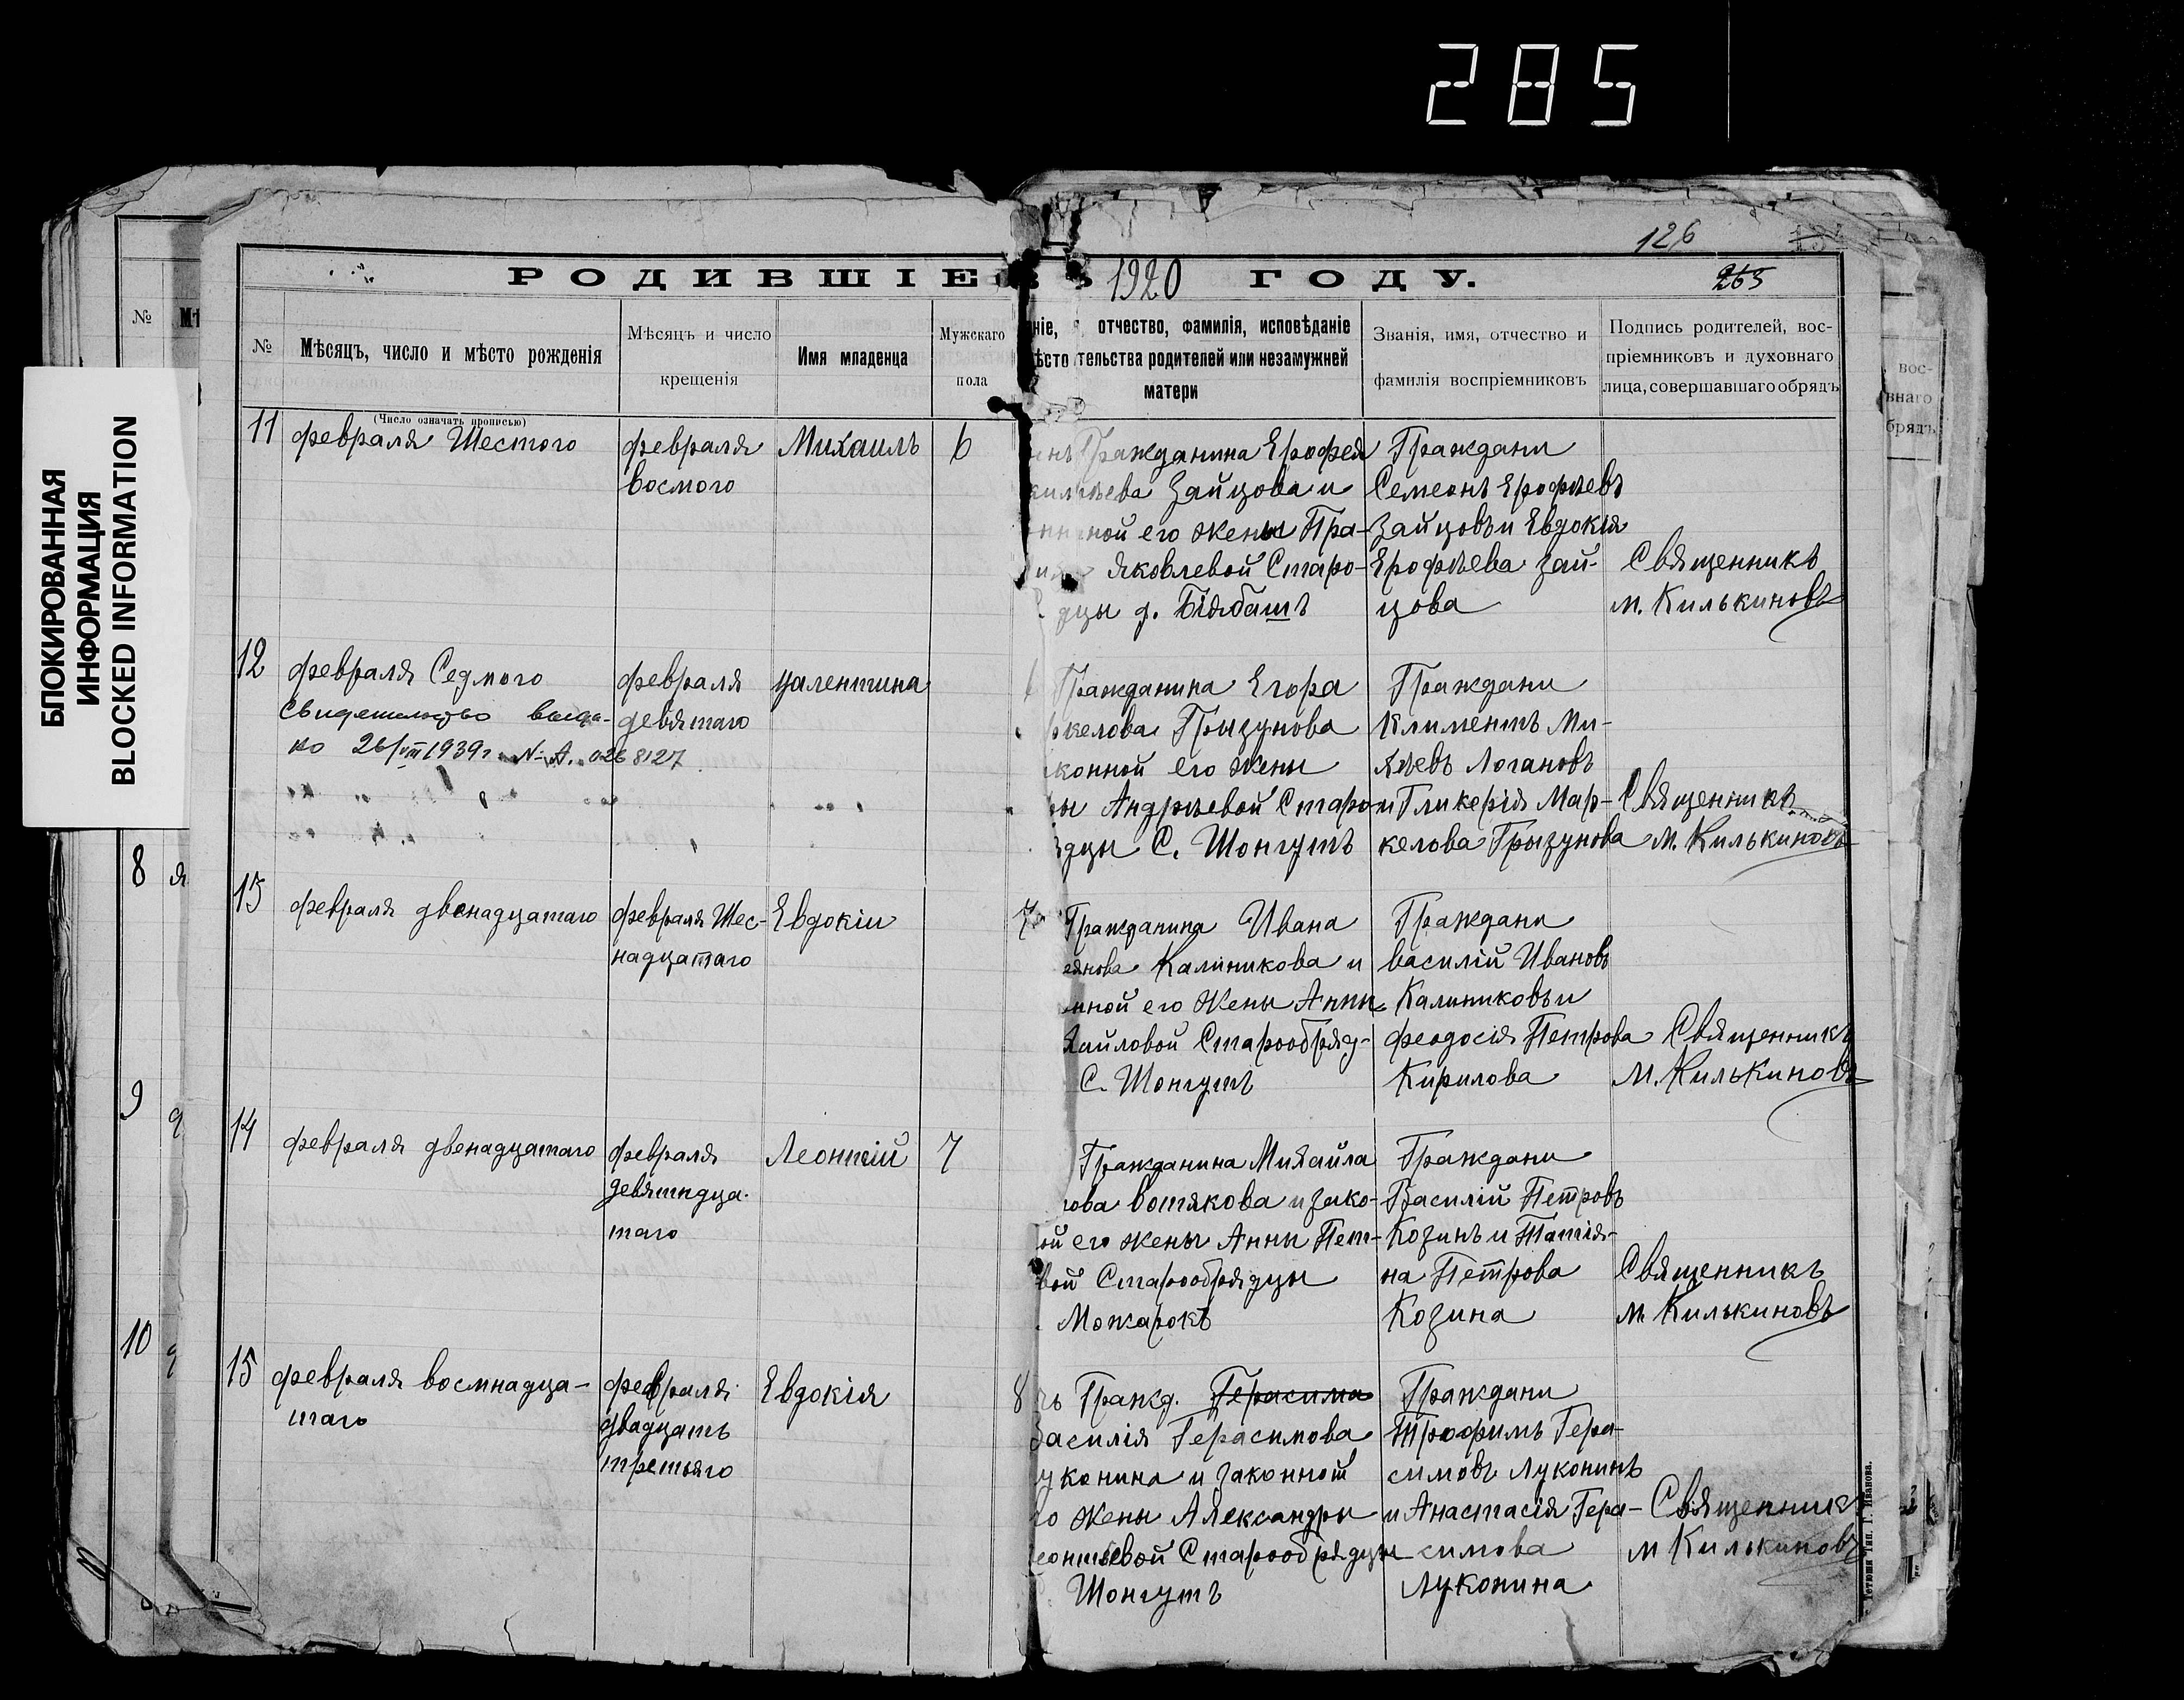 285
БЛОКИРОВАННАЯ
ИНФОРМАЦИЯ
BLOCKED INFORMATION
126
265
РОДИВШІЕ 1920 ГОДУ.
№
Мѣсяцъ, число и мѣсто рожденія
(Число означать прописью)
Мѣсяцъ и число
крещенія
Имя младенца
Мужскаго
пола
ніе, отчество, фамилія, исповѣданіе
ѣсто тельства родителей или незамужней
матери
Званія, имя, отчество и
фамилія воспріемниковъ
Подпись родителей, вос-
пріемниковъ и духовнаго
лица, совершавшаго обрядъ
11
февраля Шестого
февраля
восмого
Михаилъ
6
Гражданина Ерофея
Зайцова и
ной его жены Пра-
Яковлевой Старо-
дцы д. БІябашъ
Граждани
Семеонъ Ерофѣевъ
Зайцовъ и Евдокія
Ерофѣева Зай-
цова
Священникъ
М. Килькиновъ
12
февраля Седмого
Свидетельство выда-
но 26/VIII 1939г. №-А. 0268127
февраля
девятаго
Валентина
Гражданина Егора
келова Грызунова
конной его жены
ы Андрѣевой Старо-
дцы С. Шонгутъ
Граждани
Климентъ Ми-
хѣевъ Логановъ
и Гликерія Мар-
келова Грызунова
Священникъ
М. Килькиновъ
13
февраля двенадцатаго
февраля Шес-
надцатаго
Евдокіи
7
Гражданина Ивана
янова Калиникова и
нной его жены Анны
хайловой Старообряд-
С. Шонгутъ
Граждани
Василій Ивановъ
Калиниковъ и
Феодосія Петрова
Кирилова
Священникъ
М. Килькиновъ
14
февраля двенадцатаго
февраля
девятндца-
таго
Леонтій
7
Гражданина Михайла
ова Вотякова и зако-
ой его жены Анны Пет-
вой Старообрядцы
Можарокъ
Граждани
Василій Петровъ
Козинъ и Татія-
на Петрова
Козина
Священникъ
М. Килькиновъ
15
февраля восмнадца-
таго
февраля
двадцать
третьяго
Евдокія
8
Гражд. Герасима
Василія Герасимова
уконина и законной
го жены Александры
еонтьевой Старообрядцы
Шонгутъ
Граждани
Трофимъ Гера-
симовъ Луконинъ
и Анастасія Гера-
симова
Луконина
Священникъ
М Килькиновъ
№
8
9
10
вос-
внаго
брядъ
Тетюши Тип. Г. Иванова.